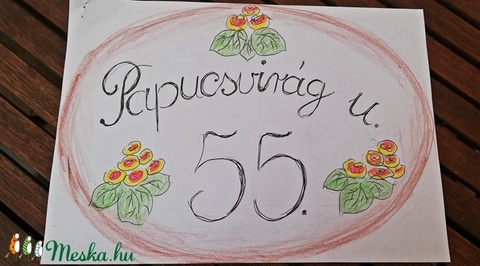 Papucsvirág u.
55.
Meska.hu